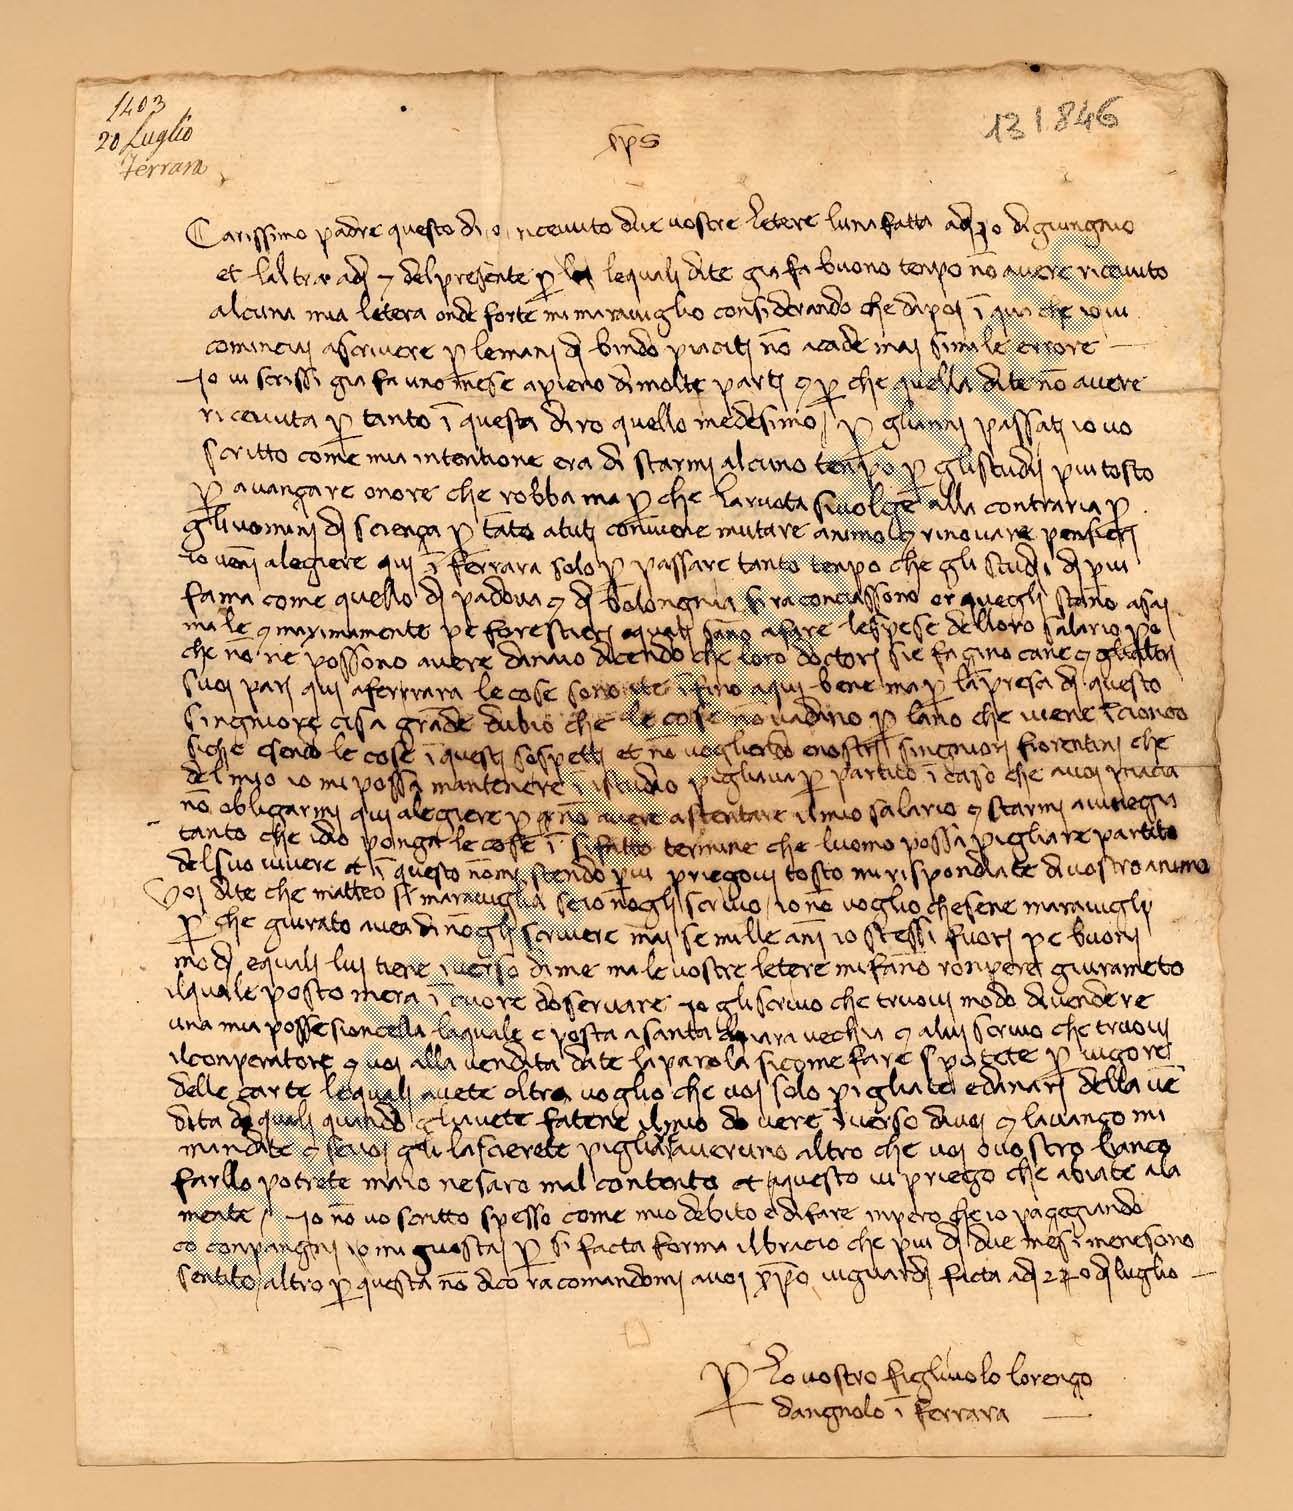 1403
20 Luglio
Ferrara
131846
xp̄s
Carissimo padre questo di 10 ricevuto due vostre letere luna fatta adj 30 di giungnio
et laltra adj 7 del presente p̄ lequalj dite gia fa buono tenpo nō avere ricevuto
alcuna mia letera onde forte mi maraviglio considerando che dipoj ī qua che io vi
cominciaj ascrivere p̄ lemanj dj bindo piacitj nō acade maj simile errore
Jo vi scrissi gia fa uno mese apieno di molte partj et p̄ che quella dite nō avere
ricevuta p̄ tanto ī questa diro quello medesimo / p̄ gliannj passatj io vo
scritto come mia intentione era di starmj alcuno tenpo p̄ glistudij piu tosto
p̄ avançare onore che robba ma p̄ che laruota sivolge alla contraria p̄
gli uominj dj sciença p̄ tāto atutj convene mutare animo et rinovare pensierj
io vēnj alegiere quj ī ferrara solo p̄ passare tanto tenpo che gli studij dj piu
fama come quello dj padova et dj bolongnia si raconciassono or queglj stāno asaj
male et maximamente pe forestierj aqualj fāno afare lespese delloro salario po
che nō ne possono avere danaio dicendo che loro doctorj sie facino cane et glialtrj
suoj parj quj aferrara le cose sono ite ī fino aquj bene ma p̄ la presa dj questo
singniore cisa grāde dubio che le cose nō vadino p̄ lāno che viene ī
siche esendo le cose ī questj sospettj et nō voglierdo enostrj singniorj fiorentinj che
del mio io mi possa mantenere ī istudio pigliava p̄ partito ī caso che avoj piacia
nō obligarmj quj alegiere p nō avere astentare ilmio salario et starmj avinegia
tanto che idio ponga le cose ī sifatto termine che luomo possa pigliare partito
del suo vivere et ī questo nōmj stendo piu priegovi tosto mi rispondiate di vostro animo
Voj dite che matteo si maraviglia seio nōglj scrivo / io nō voglio chesene maraviglj
p̄ che giurato avea di nōglj scrivere maj se mille ānj io stessi fuorj pe buonj
modj equalj luj tiene īverso dime ma le vostre letere mi fāno ronpere giurameto
ilquale posto mera ī cuore doservare Jo gli scrivo che truovj modo divendere
una mia possesioncella laquale e posta asanta maria vechia et aluj scrivo che truovj
ilconperatore et voj alla vendita date laparola sicome fare spotete p̄ vigore
delle carte lequalj avete oltra voglio che voj solo pigliate edanarj della vē
dita de qualj quando gliavete fatene il mio dovere īverso divoj et lavanço mi
mandate et sevoj glilascierete pigliare averuno altro che voj ovostro banco
farllo potrete maio nesaro mal contento et aquesto vi priego che abiate ala
mente / Jo nō vo scritto spesso come mio debito edifare inpero che io
co conpangnj io mi guastaj p̄ si facta forma ilbracio che piu dj due mesj menesono
sentito / altro p̄ questa nō dico racomandomj avoj xp̄o viguardj facta adj 20 dj luglio
p̄ Lo vostro figliuolo lorenço
dangnolo ī ferrara